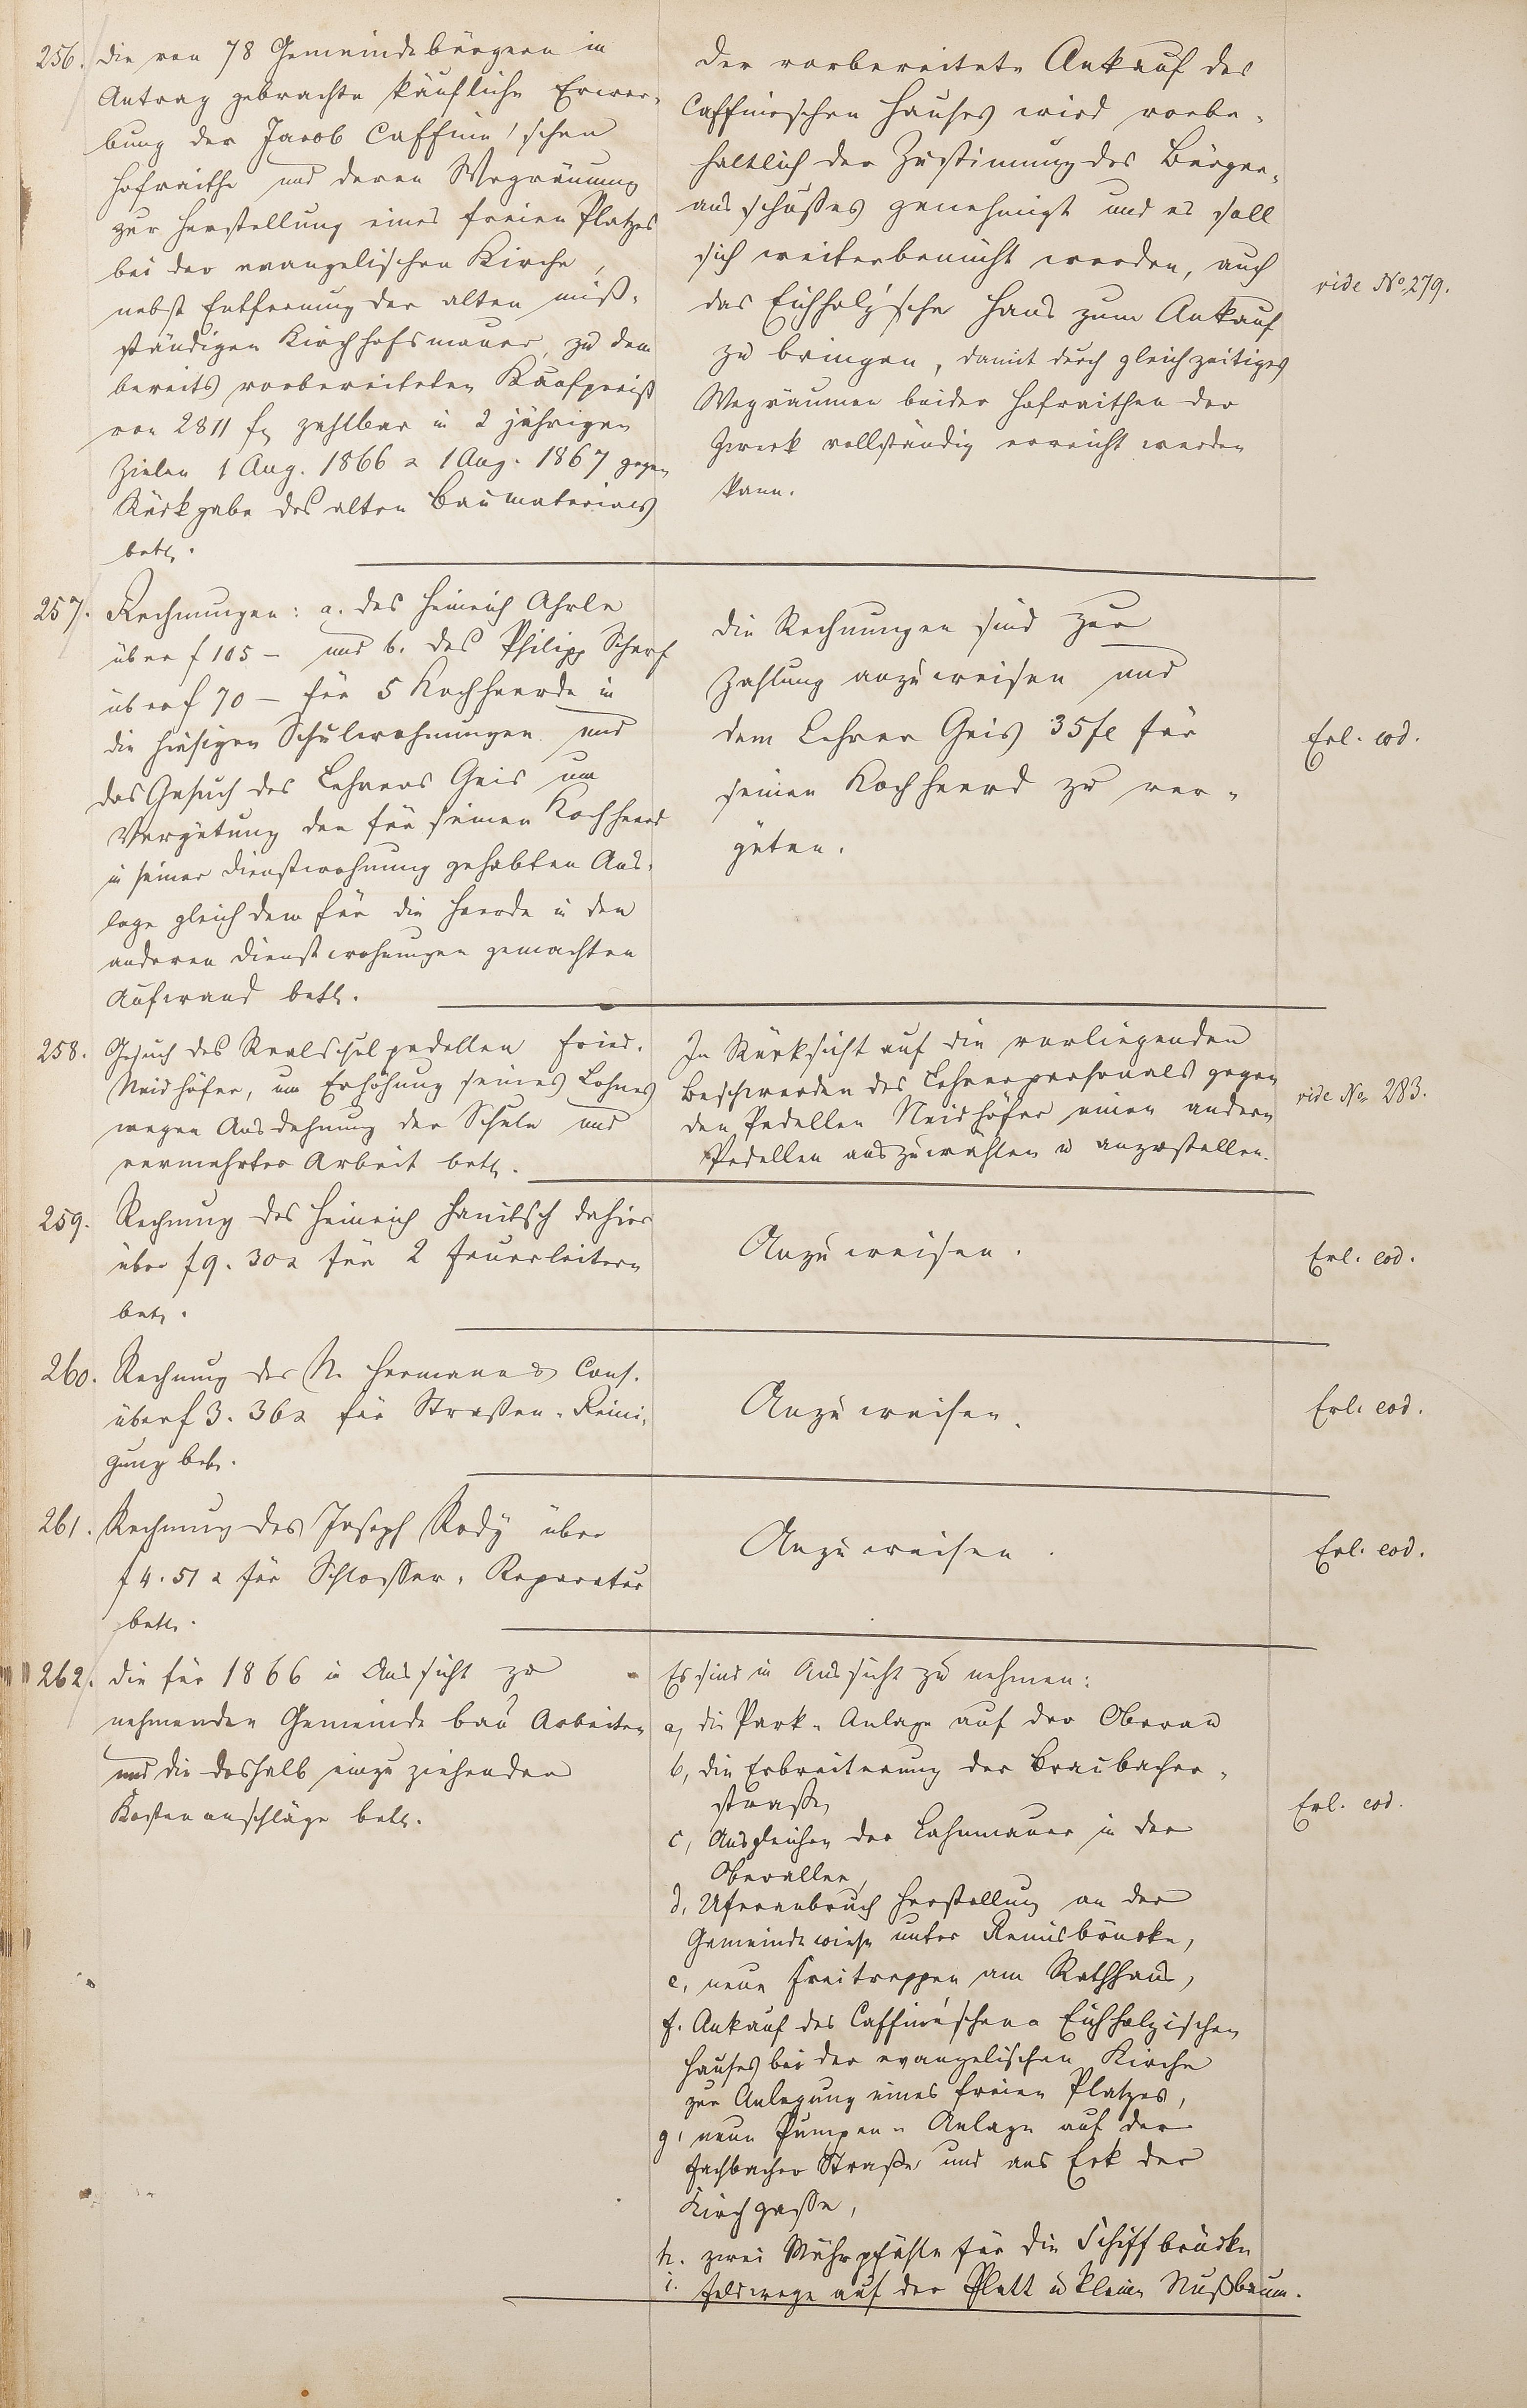 256. Die von 78 Gemeindebürgern in
Antrag gebrachte käufliche Erwer-
bung der Jacob Caffine'schen
Hofraithe und deren Wegräumung
zur Herstellung eines freien Platzes
bei der evangelischen Kirche,
nebst Entfernung der alten miß-
ständigen Kirchhofsmauer, zu dem
bereits vorbereiteten Kaufpreiß
von 2811 fl zahlbar in 2 jährigen
Zielen 1 Aug. 1866 & 1 Aug. 1867 gegen
Rückgabe des alten Baumaterials
betr.
Der vorbereitete Ankauf des
Caffine'schen Hauses wird vorbe-
haltlich der Zustimmung des Bürger-
ausschußes genehmigt und es soll
sich weiterbemüht werden, auch
das Eichholz'sche Haus zum Ankauf
zu bringen, damit durch gleichzeitiges
Wegräumen beider Hofraithen der
Zweck vollständig erreicht werden
kann.
vide No 279.
257. Rechnungen: a. des Heinrich Ahrle
über f 105 – und b. des Philipp Scharf
über f 70 – für 5 Kochheerde in
die hiesigen Schulwohnungen und
das Gesuch des Lehrers Geis um
Vergütung der für seinen Kochheerd
in seiner Dienstwohnung gehabten Aus-
lage gleich dem für die Heerde in den
anderen Dienstwohnungen gemachten
Aufwand betr.
Die Rechnungen sind zur
Zahlung anzuweisen und
dem Lehrer Geis 35 fl für
seinen Kochheerd zu ver-
güten.
Erl. eod.
258. Gesuch des Realschulpedellen Fried.
Neidhöfer, um Erhöhung seines Lohnes
wegen Ausdehnung der Schule und
vermehrter Arbeit betr.
In Rücksicht auf die vorliegenden
Beschwerden des Lehrerpersonals gegen
den Pedellen Neidhöfer einen andern
Pedellen auszuwählen u anzustellen.
vide No 283.
259. Rechnung des Heinrich Hanitsch dahier
über f 9. 30 x für 2 Feuerleitern
betr.
Anzuweisen.
Erl. eod.
260. Rechnung des N. Hermann & Cons.
über f 3. 36 x für Straßen-Reini-
gung betr.
Anzuweisen.
Erl. eod.
261. Rechnung des Joseph Rody über
f 4. 51 x für Schlosser-Reparatur
betr.
Anzuweisen.
Erl. eod.
262. Die für 1866 in Aussicht zu
nehmenden Gemeinde bau Arbeiten
und die deshalb einzuziehenden
Kostenanschläge betr.
Es sind in Aussicht zu nehmen:
a, die Park-Anlage auf der Oberau
b, die Erbreiterung der Braubacher-
straße,
c, Ausgleichen der Lahnmauer in der
Oberallee,
d, Uferanbruch Herstellung an der
Gemeindewiese unter Remisbrücke,
e, neue Freitreppen am Rathhaus,
f. Ankauf des Caffine'schen & Eichholzischen
Hauses bei der evangelischen Kirche
zur Anlegung eines freien Platzes,
g, neue Pumpen-Anlage auf der
Fachbacher Straße und ans Eck der
Kirchgasse,
h. zwei Mährpfähle für die Schiffbrücke
i. Feldwege auf der Platt u kleinen Nußbaum.
Erl. eod.